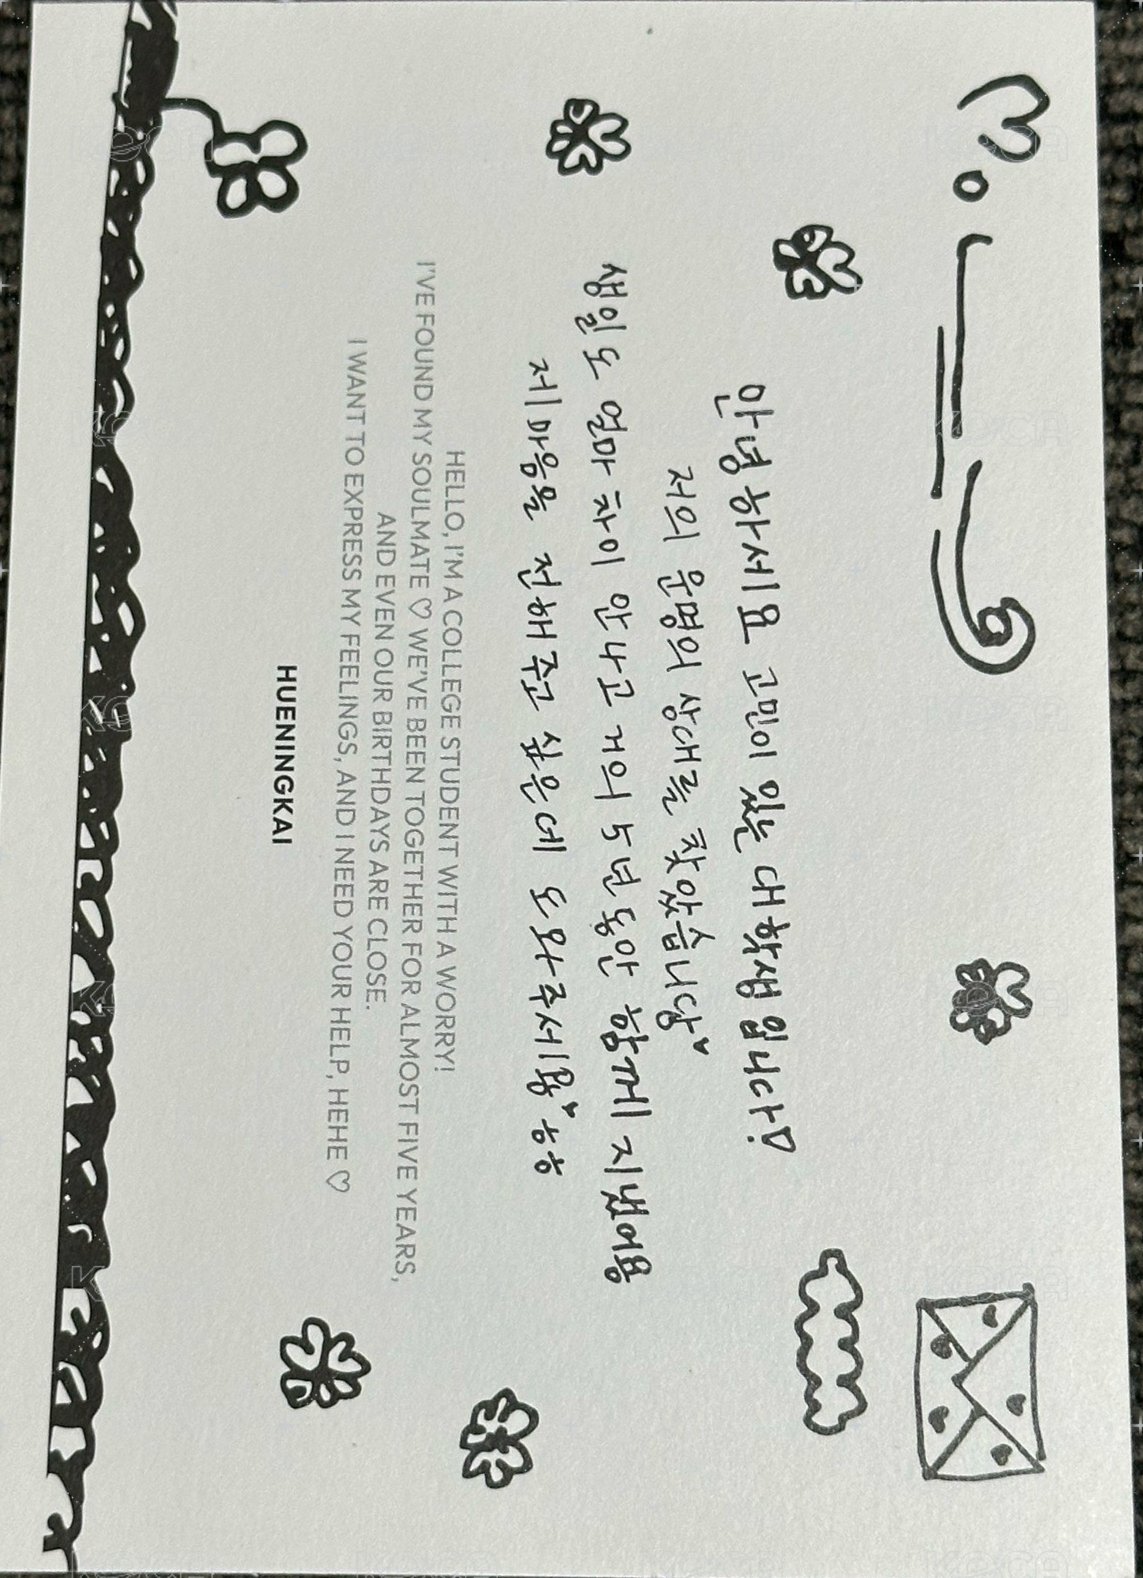 안녕하세요 고민이 있는 대학생입니다!
저의 운명의 상대를 찾았습니당♥
생일도 얼마 차이 안나고 거의 5년동안 함께 지냈어용
제 마음을 전해주고 싶은데 도와주세용♥ㅎㅎ
HELLO, I'M A COLLEGE STUDENT WITH A WORRY!
I'VE FOUND MY SOULMATE ♡ WE'VE BEEN TOGETHER FOR ALMOST FIVE YEARS,
AND EVEN OUR BIRTHDAYS ARE CLOSE.
I WANT TO EXPRESS MY FEELINGS, AND I NEED YOUR HELP, HEHE ♡
HUENINGKAI